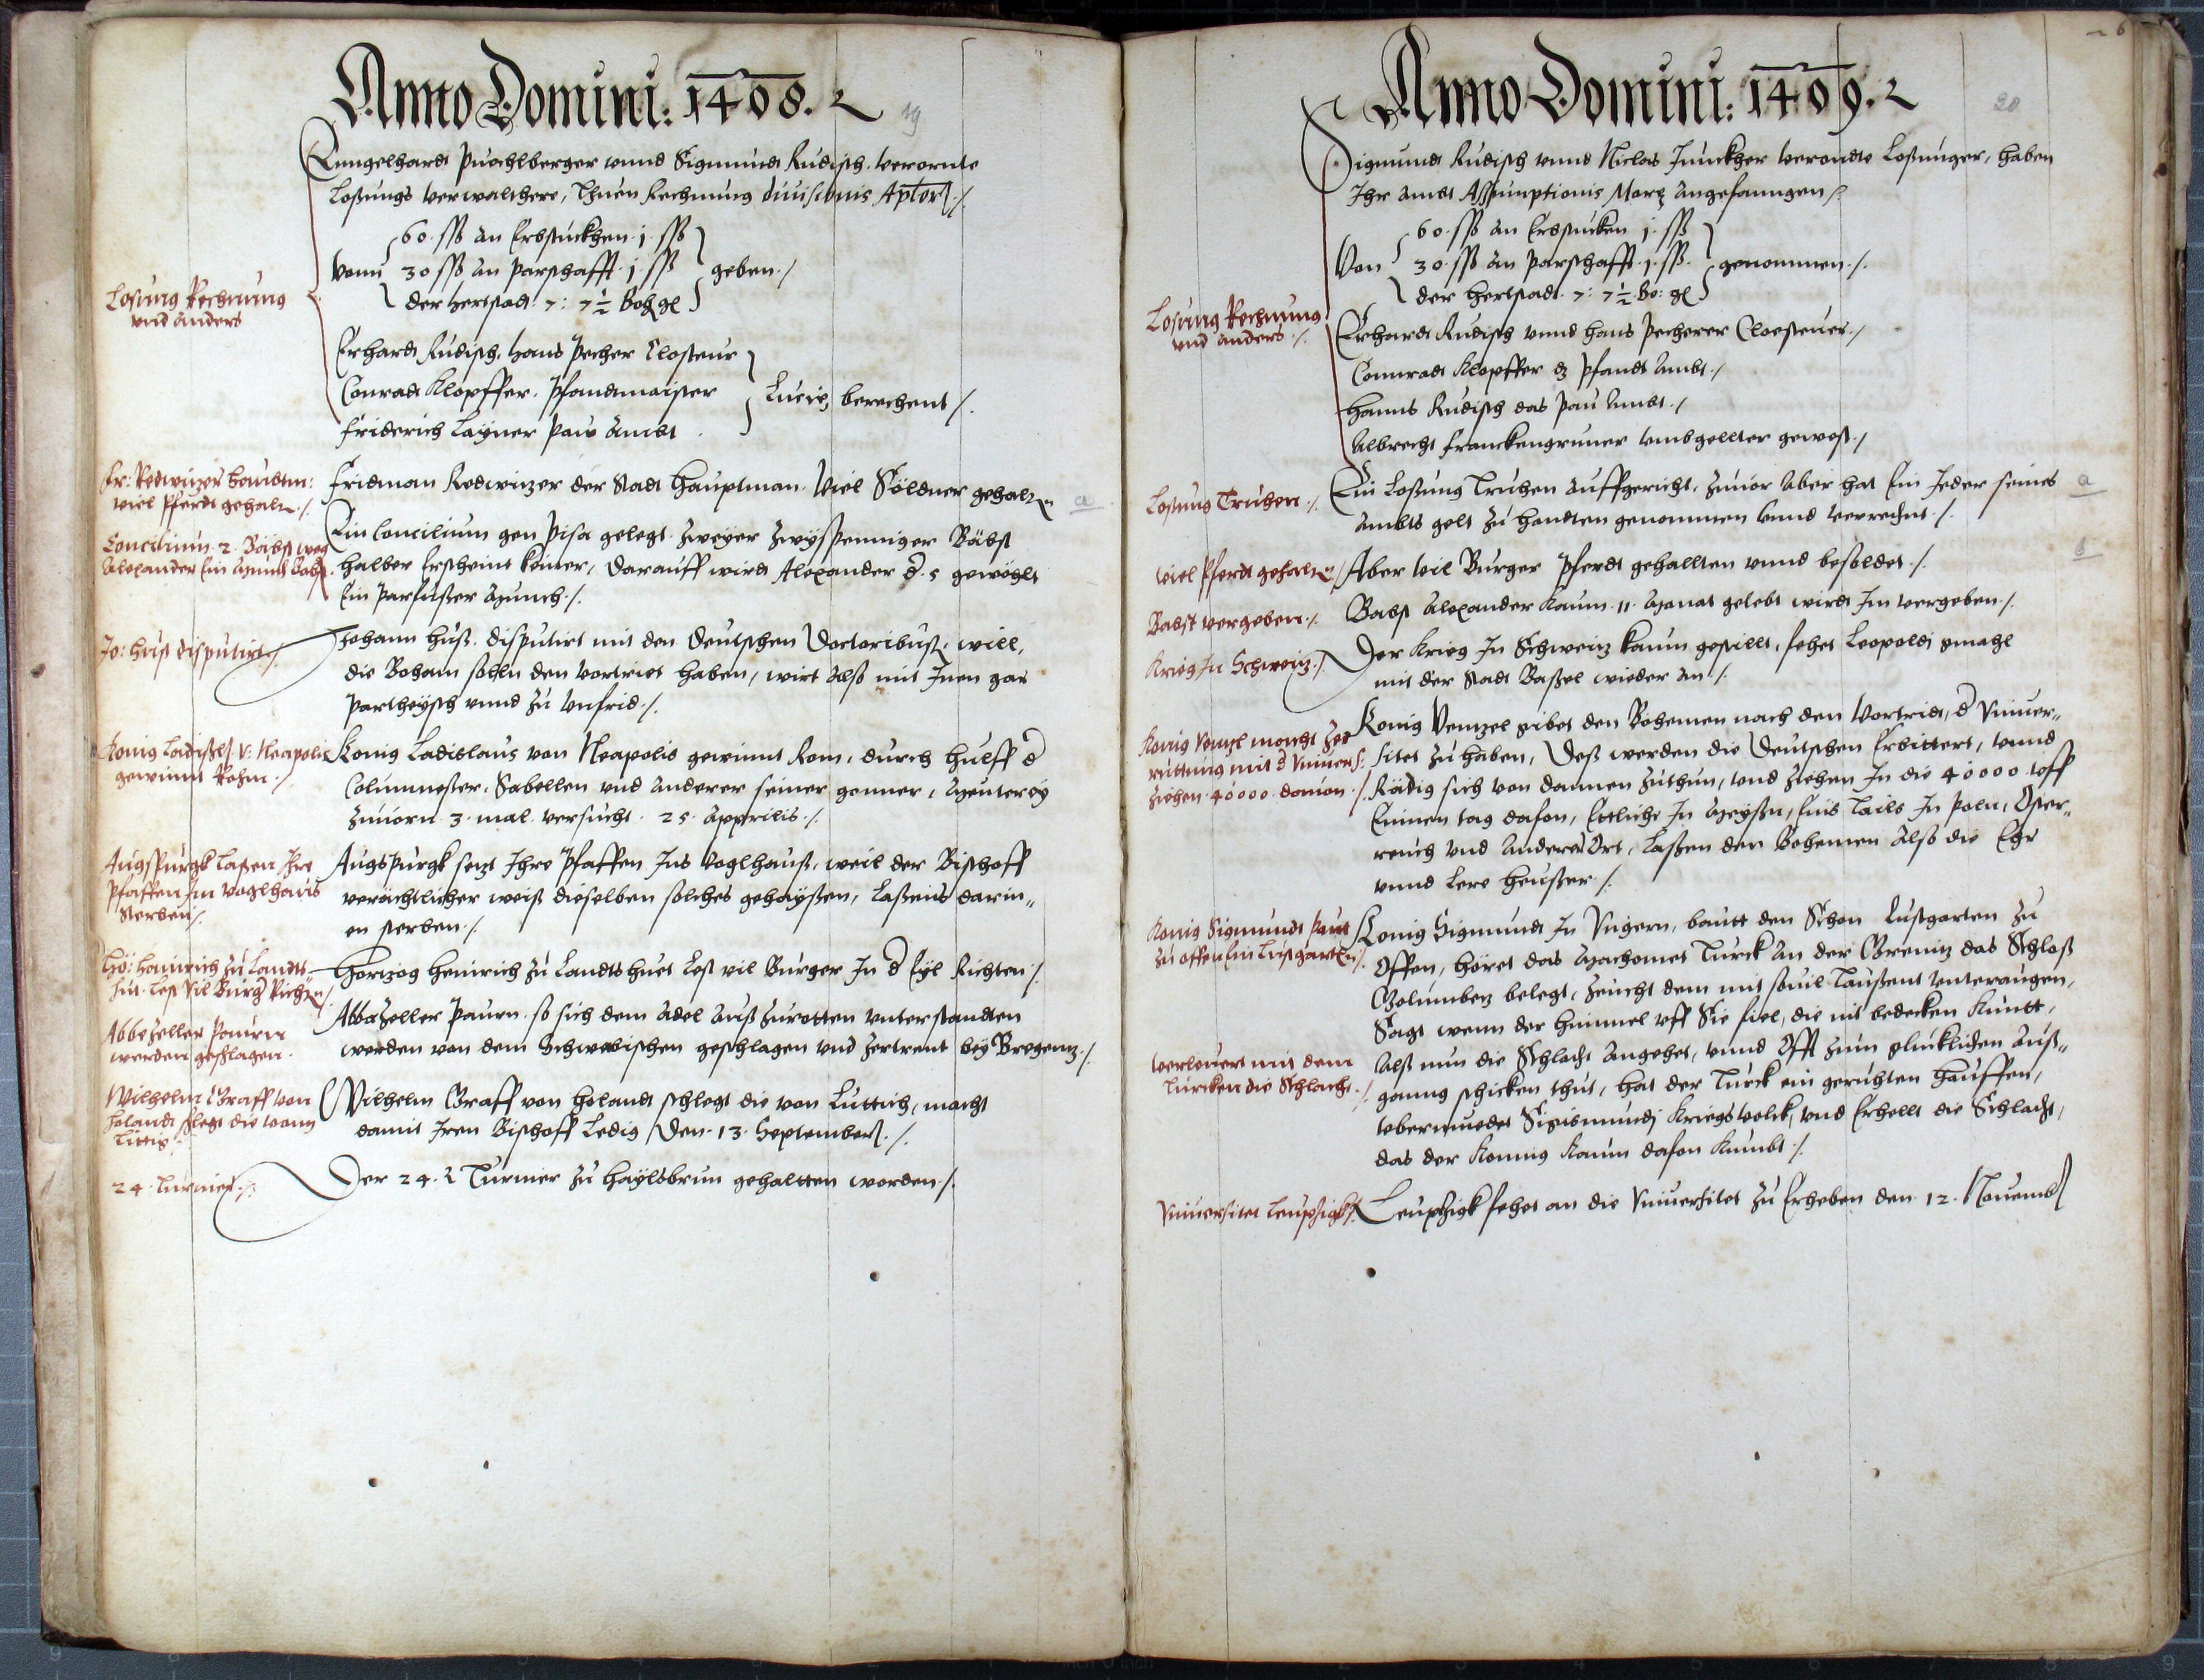 Anno Domini: 1408.
19
Enngelhardt Puechlberger vnnd Sigmundt Rudisch verornte
Losungs verwalthere, Thuen Rechnung diuisionis Aplor /.
60. ß an Erbstuckhen .j. ß
Vonn 30 ß an Parschafft .j. ß geben./
der hertstadt 7: 7½ Boh gl
Losung Rechnung
vnd anders
Erhardt Rudisch, Hans Pecher Closteur
Conradt Klopffer. Pfandtmaister
Luciæ berechent /.
Friderich Layner Paw Ambt
Fr: Redwitzer haubtm:
viel Pferdt gehaltn./
Fridman Redwitzer der Stadt Hauptman. Viel Söldner gehaltn
a
Concilium 2 Bäbst weg
Alexander ein Munch Babst
Ein Concilium gen Pisa gelegt. zweyer zwyspenniger Bäbst
halber Erscheint keiner, darauff wirdt Alexander d. 5 gewöhlt
Ein Parfusser Munch./.
Jo: Huß disputirt./
Johann Huß. disputirt mit den deutschen Doctoribus, will,
die Boham sollen den Vortriet haben, wirt alß mit Inen gar
Partheysch vnnd zu vnfrid./.
Konig Ladißl. v: Neapolis
gewinnt Rohm./
Konig Ladislaus von Neapolis gewinnt Rom, durch hulff d
Columneser. Sabellen vnd anderer seiner genner, Meuterey
Zuuorn 3. mal versucht. 25 Apprilis./.
Augspurgk lassen Ihre
Pfaffen im voglhaus
sterben/.
Augspurgk setzt Ihre Pfaffen Ins Voglhauß, weil der Bischoff
verächtlicher weiß dieselben solches gehayssen, lassens darin„
en sterben./.
Hö: Heinrich zu Landts
hut lest vil Burg Richtn/.
Hertzog Heinrich zu Landtshuet Lest vil Burger In d Eyl Richten/.
Abbezeller Paurn
werden geschlagen.
Abbazeller Paurn. so sich dem Adel auß zurotten vnterstandten
werden von dem Schwebischen geschlagen vnd zertrent bey Bregentz./.
Wilhelm Graff von
Holandt schlegt die vonn
Littig/.
Wilhelm Graff von Holandt schlegt die von Luttich, macht
damit Iren Bischoff Ledig, Den 13. September./.
24. Turnier./.
Der 24. Turnier zu Haylsbrun gehaltten worden./.
Anno Domini: 1409.
20
Sigmundt Rudisch vnnd Niclas Junckher verondte Losunger, haben
Ihr ambt Assumptionis Marę angefanngen/.
60. ß an Erbstucken .j. ß
Von 30. ß an Parschafft .j. ß. genommen./.
der hertstadt 7: 7½ Bo: gl
Losung Rechnung
vnd anders./.
Erhardt Rudisch vnnd Hans Pecherer Closteuer./
Connradt Klopffer dz Pfandt Ambt./
Hanns Rudisch das Pau Ambt./
Albrecht Franckengruner vmbgellter gewest./
Losung Truhen./.
Ein Losung Truhen auffgericht, zuuor aber hat Ein Jeder seines
Ambts gelt zu handten genommen vnnd verrechnt./.
a
viel Pferdt gehaltn/
Aber viel Burger Pferdt gehallten vnnd besoldet./.
b
Babst vergeben./.
Babst Alexander kaum .11. Monat gelebt wirdt Im vergeben./.
Krieg In Schweitz./.
Der Krieg In Schweitz kaum gestillt, fehet Leopoldi gmahl
mit der Stadt Basel wieder an/.
Konig Wenzl macht Zer
ruttung mit d Vniuers:
ziehen 40000 dauon./
Konig Wenzel gibet den Böhemen nach den Vortridt, d Vniuer„
sitet zu haben, Deß werden die Deutschen Erbittert, vnnd
Rädig sich von dannen zuthun, vnd ziehen In die 40000 auff
Einnen tag dafon, Ettliche In Meyssn, Eins tails In Poln, Oster„
reuch vnd andere Ort, lassen den Bohemen Alß die Ehr
vnnd Lere Heusser./.
Konig Sigmundt Paut
zu Offen Ein Lustgarten/.
Konig Sigmundt In Vngern, bautt den Schon Lustgarten zu
Offen, höret das Machomet Turck an der Grenitz das Schloß
Columbetz belegt, zeucht dem mit souil Taußent vnteraugen,
Sagt wenn der himmel vff Sie fiel, die nit bedecken kuntt,
Alß nun die Schlacht angehet, vnnd Offt zum glucklichen auß„
gannng schicken thut, hat der Turck ein geruhten hauffen,
vbermuedet Sigismundj Kriegsvolk, vnd Erhellt die Schlacht,
das der Konnig kaum dafon kumbt./.
verleuert mit dem
Turcken die Schlacht./.
Vniuersitet Leuphigk/.
Leuphigk fehet an die Vniuersitet zu Erheben den 12. Nouemb